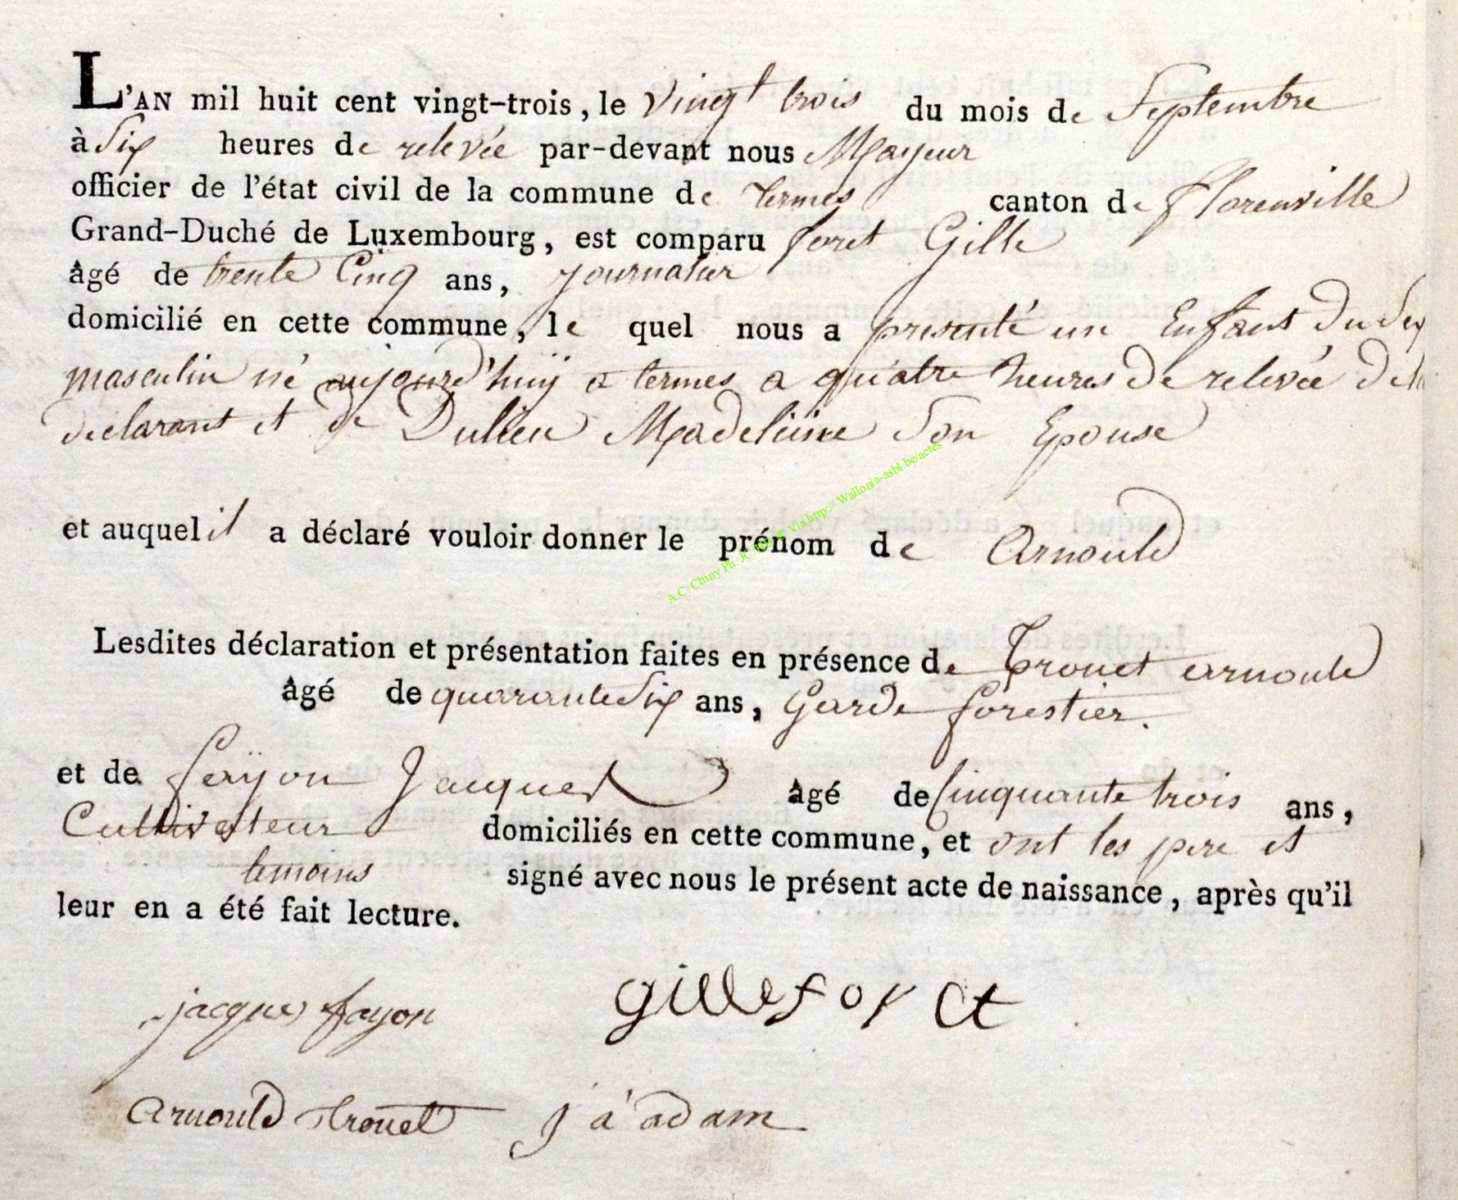 L'AN mil huit cent vingt-trois, le vingt trois du mois de Septembre
à Six heures de relevée par-devant nous Mayeur
officier de l'état civil de la commune de termes canton de florenville
Grand-Duché de Luxembourg, est comparu foret Gille
âgé de trente Cinq ans, journalier
domicilié en cette commune, le quel nous a presenté un Enfant du Sex
masculin né aujourd'huÿ a termes a quatre heures de relevée de
declarant et de Dulieu Madeleine Son Epouse
et auquel il a déclaré vouloir donner le prénom de Arnould
A.C. Chiny Ph. Wallonia-asbl.be/actes
Lesdites déclaration et présentation faites en présence de Trouet arnould
âgé de quarante Six ans, Garde forestier.
et de faÿon Jacques âgé de Cinquante trois ans,
Cultivateur domiciliés en cette commune, et ont les pere et
temoins signé avec nous le présent acte de naissance, après qu'il
leur en a été fait lecture.
jacques fayon gille foret
Arnould Trouet j a adam